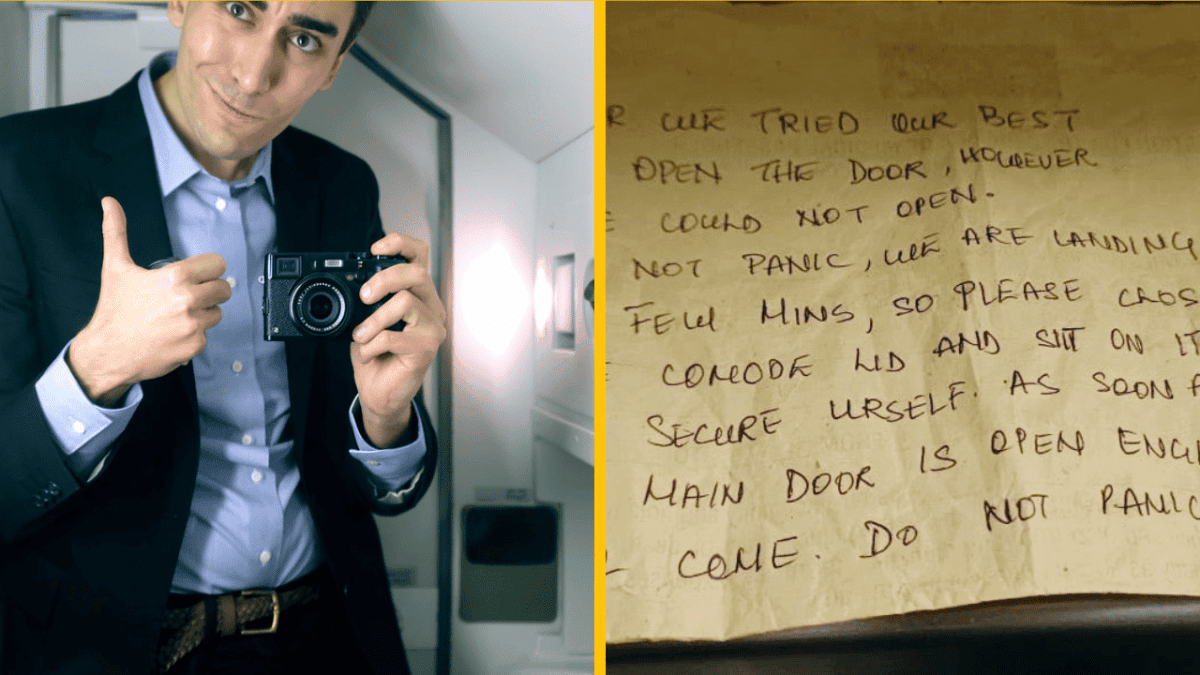 R WE TRIED OUR BEST
OPEN THE DOOR, HOWEVER
E COULD NOT OPEN.
NOT PANIC, WE ARE LANDING
FEW MINS, SO PLEASE CLOS
E COMODE LID AND SIT ON IT
SECURE URSELF. AS SOON A
MAIN DOOR IS OPEN ENGI
L COME. DO NOT PANIC